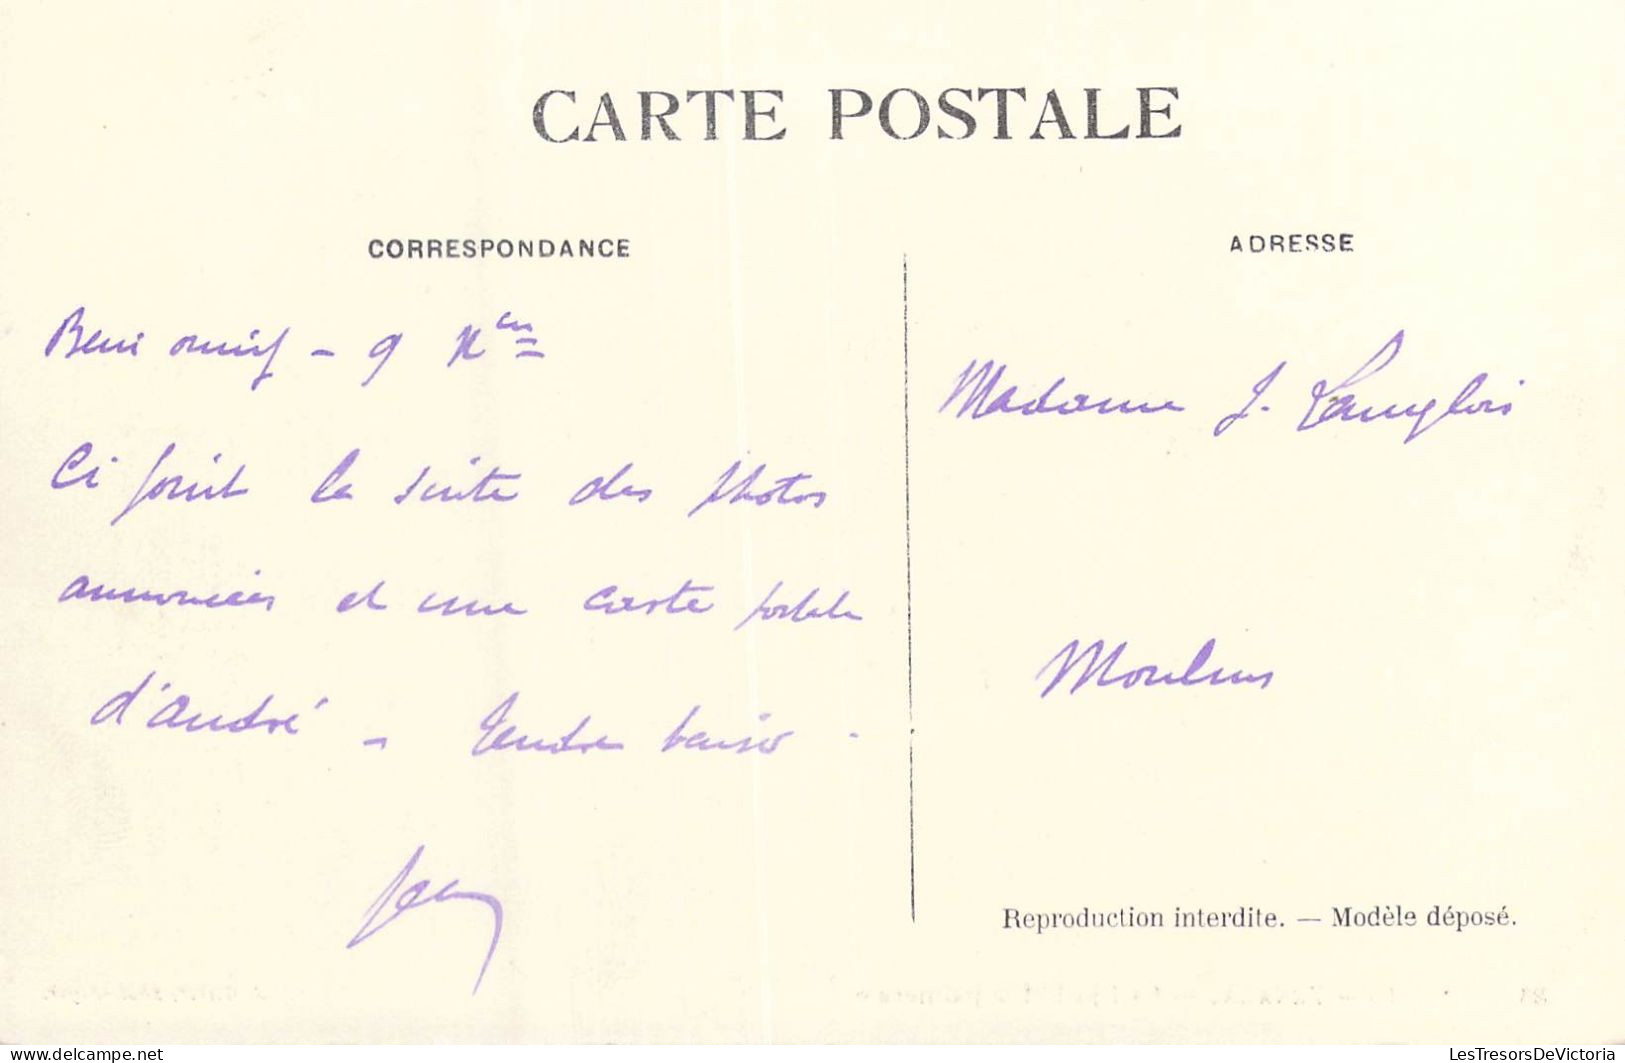 CARTE POSTALE
CORRESPONDANCE
Beni ounif - 9 X<sup>bre</sup>
Ci joint la suite des photos
annoncées et une carte postale
d'André - Tendre baiser.
Jean
ADRESSE
Madame J. Langlois
Moulins
Reproduction interdite. — Modèle déposé.
LesTresorsDeVictoria
delcampe.net